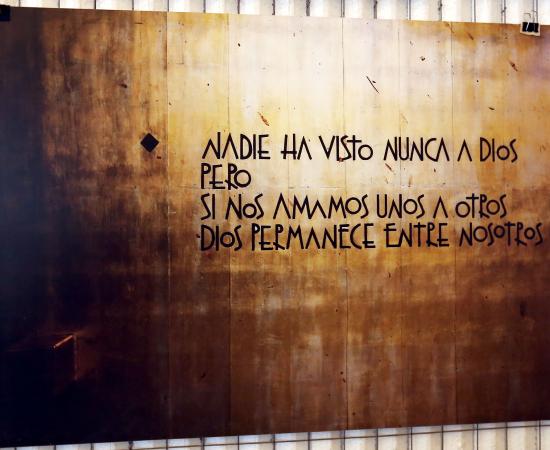 NADIE HA VISTO NUNCA A DIOS
PERO
SI NOS AMAMOS UNOS A OTROS
DIOS PERMANECE ENTRE NOSOTROS